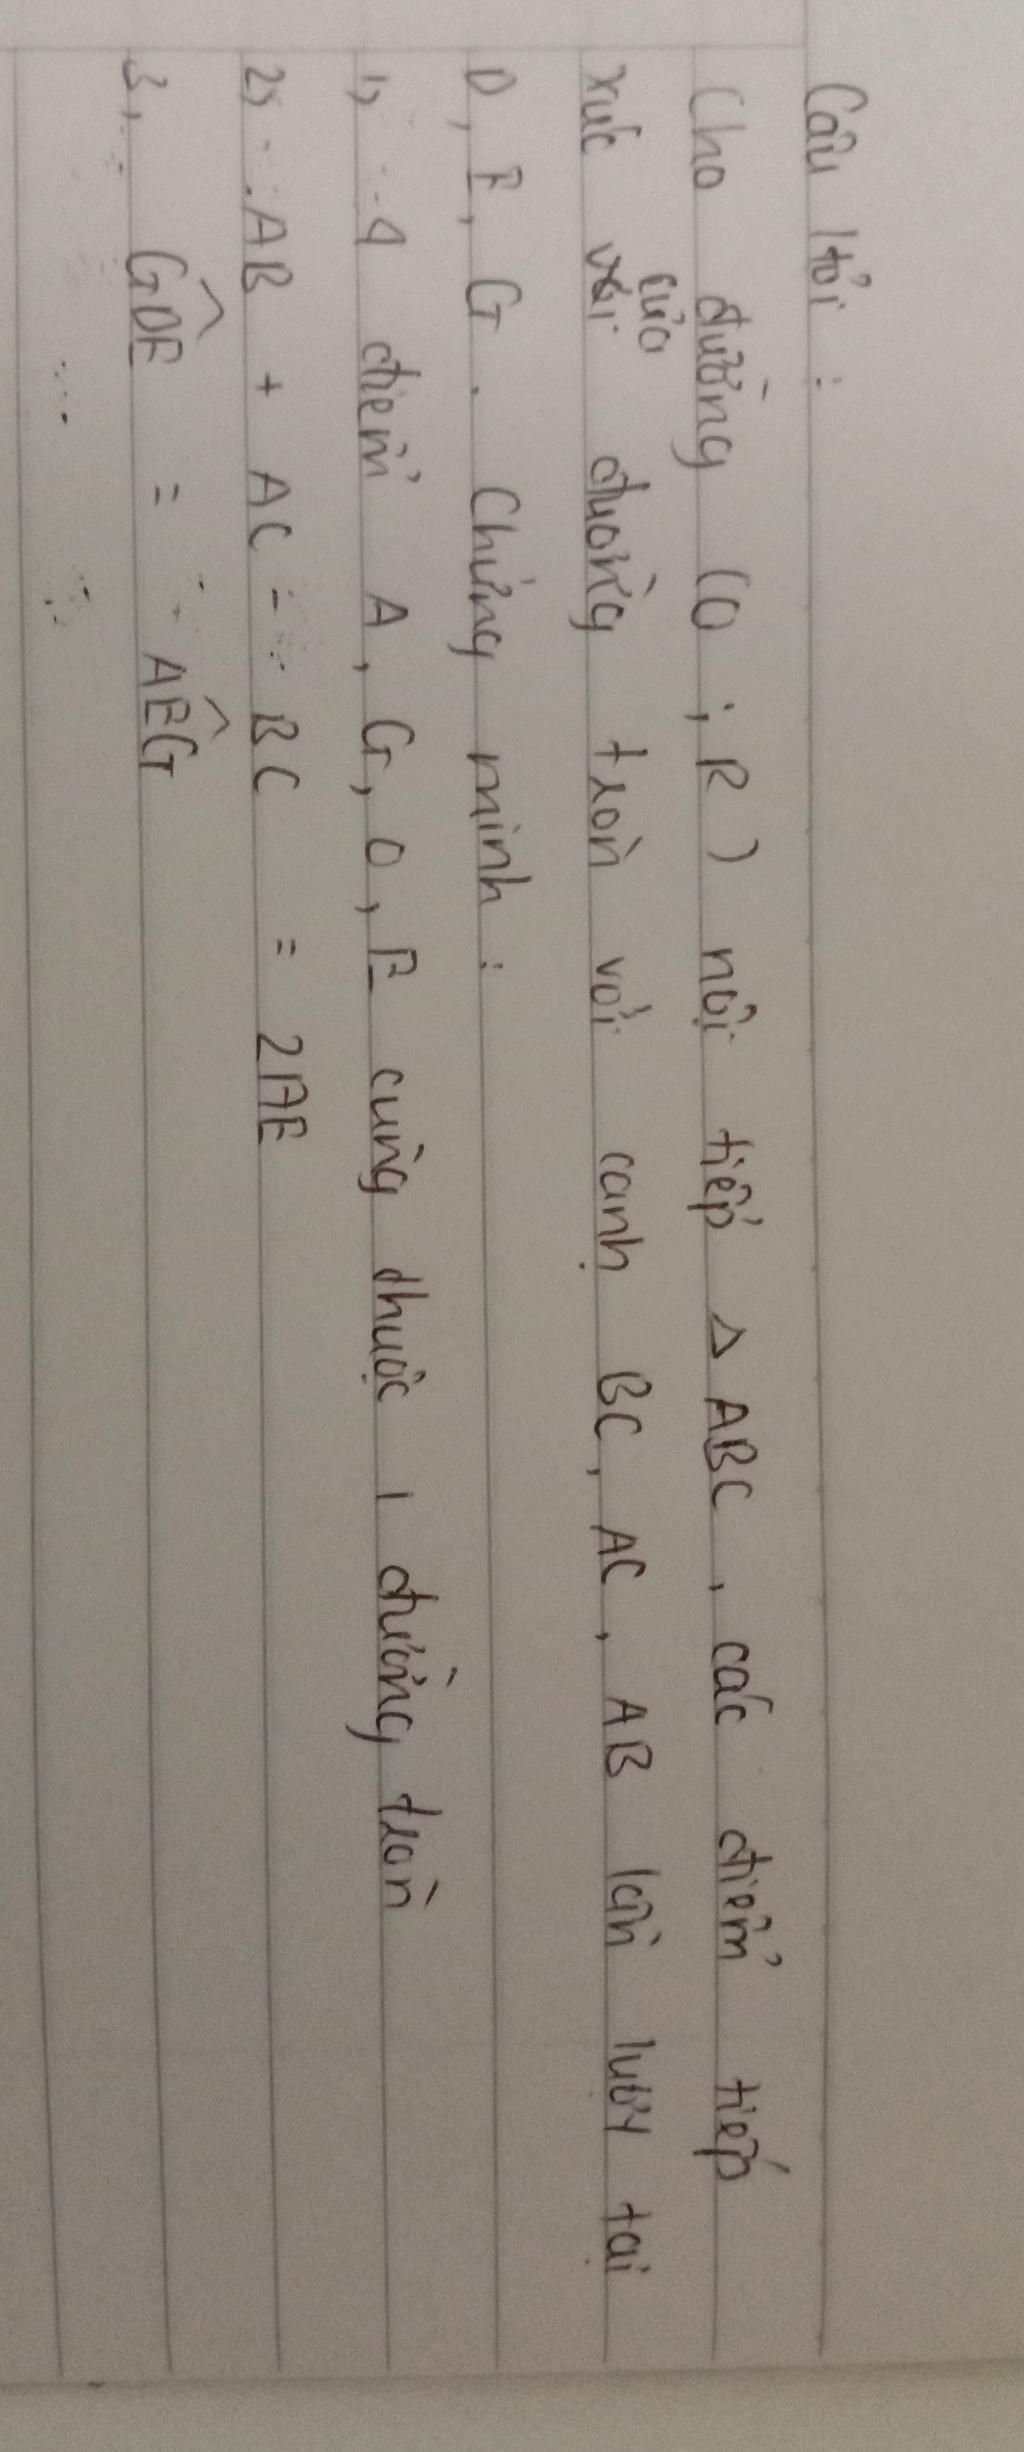 Câu hỏi :
Cho đường (O ; R) nội tiếp Δ ABC , các điểm tiếp
xúc của đường tròn với cạnh BC, AC, AB lần lượt tại
D, E, G. Chứng minh :
1, 4 điểm A, G, O, E cùng thuộc 1 đường tròn
2, AB + AC - BC = 2AE
3, GDE = AEG